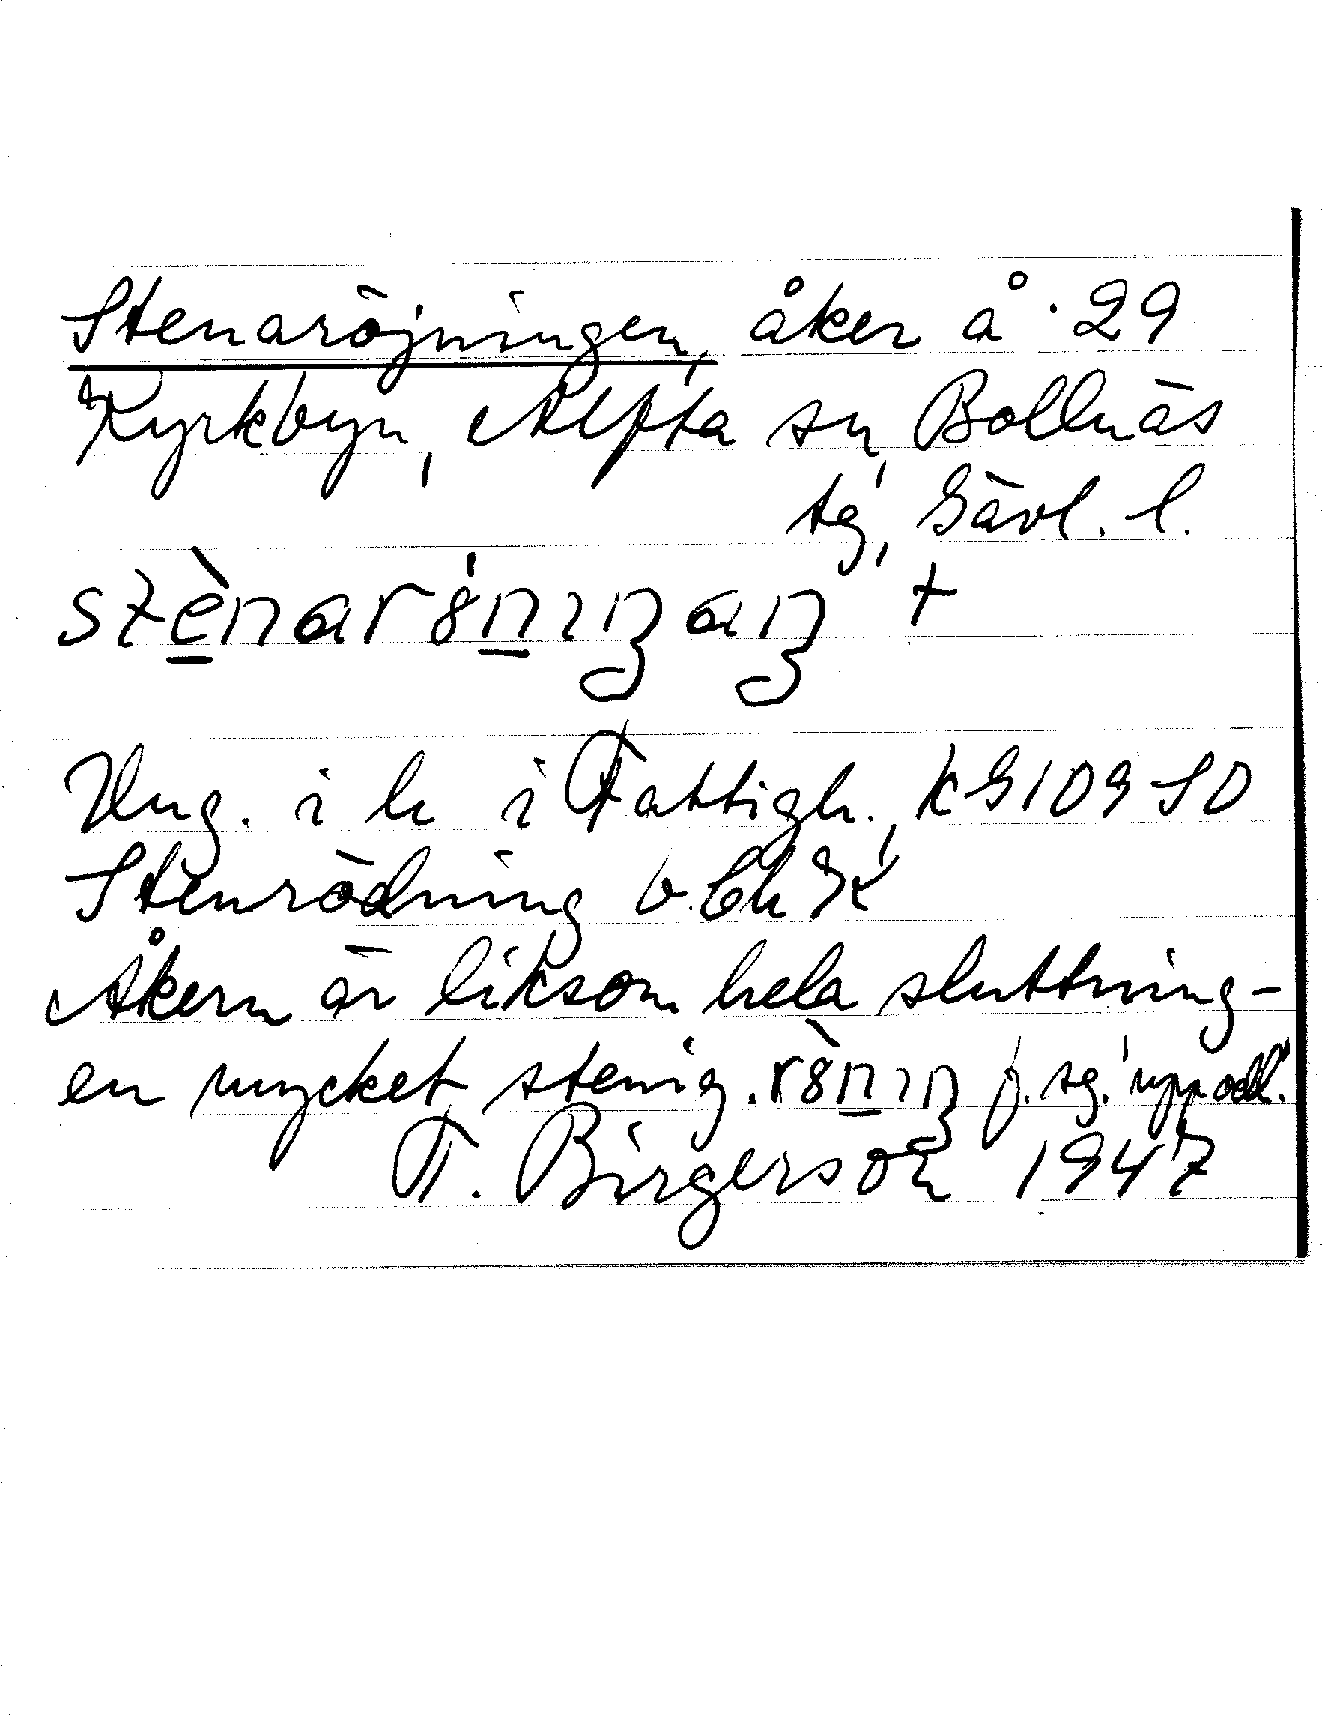 Stenaröjningen, åker å 29
Kyrkbyn, Alfta sn, Bollnäs
tg, Gävl. l.
stènarö́niŋaŋ +
Ung. i h i Fattigh., KG109 SO
Stenrödning
Åkern är liksom hela sluttning-
en mycket stenig. rö̀niŋ f. sg. "uppodl."
T. Birgerson 1947